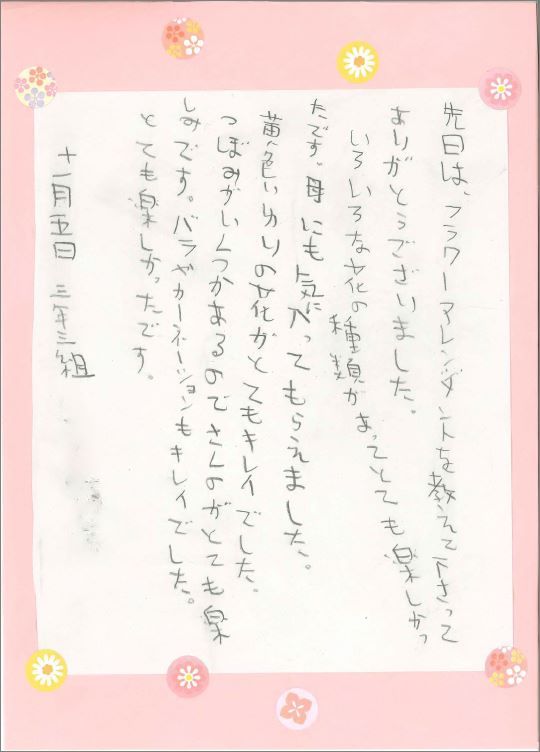 先日は、フラワーアレンジメントを教えて下さって
ありがとうございました。
いろいろな花の種類があってとても楽しかっ
たです。母にも気に入ってもらえました。
黄色いゆりの花がとてもキレイでした。
つぼみがいくつかあるのでさくのがとても楽
しみです。バラやカーネーションもキレイでした。
とても楽しかったです。
十一月五日 三年三組